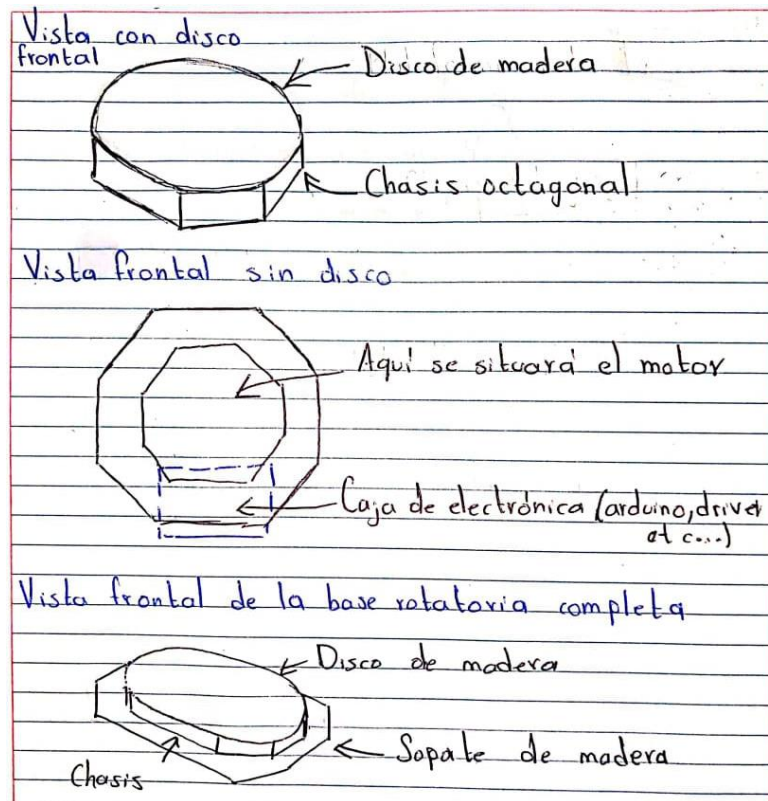 Vista con disco
frontal
Disco de madera
Chasis octagonal
Vista frontal sin disco
Aquí se situará el motor
Caja de electrónica (arduino, driver
etc...)
Vista frontal de la base rotatoria completa
Disco de madera
Sopate de madera
Chasis